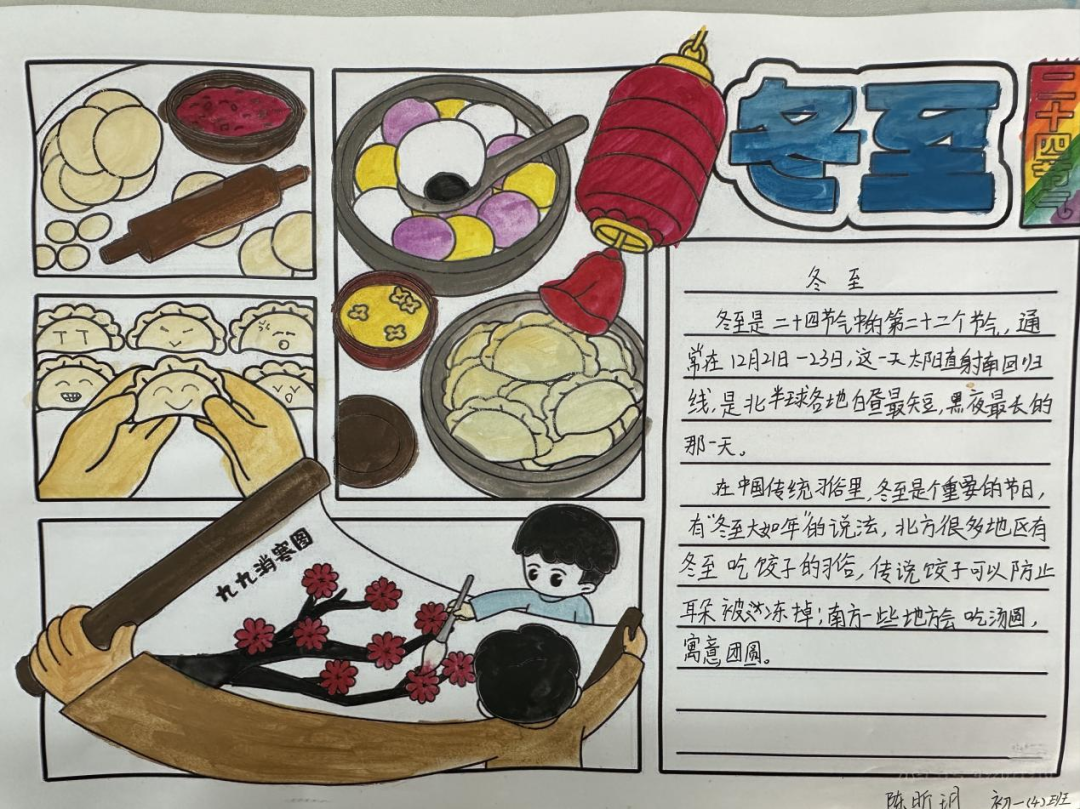 冬至
二十四节气
冬至
冬至是二十四节气中的第二十二个节气,通
常在12月21日-23日,这一天太阳直射南回归
线,是北半球各地白昼最短,黑夜最长的
那一天。
在中国传统习俗里,冬至是个重要的节日,
有“冬至大如年”的说法,北方很多地区有
冬至吃饺子的习俗,传说饺子可以防止
耳朵被冻掉;南方一些地方会吃汤圆,
寓意团圆。
九九消寒图
陈昕玥 初一(4)班